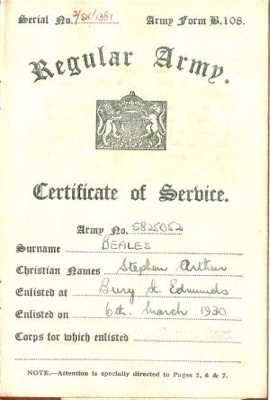 Serial No. 2/SX/1381 Army Form B.108.
Regular Army.
Certificate of Service.
Army No. 5825052
Surname BEALES
Christian Names Stephen Arthur
Enlisted at Bury St. Edmunds
Enlisted on 6th. March 1930
Corps for which enlisted
NOTE.—Attention is specially directed to Pages 2, 6 & 7.